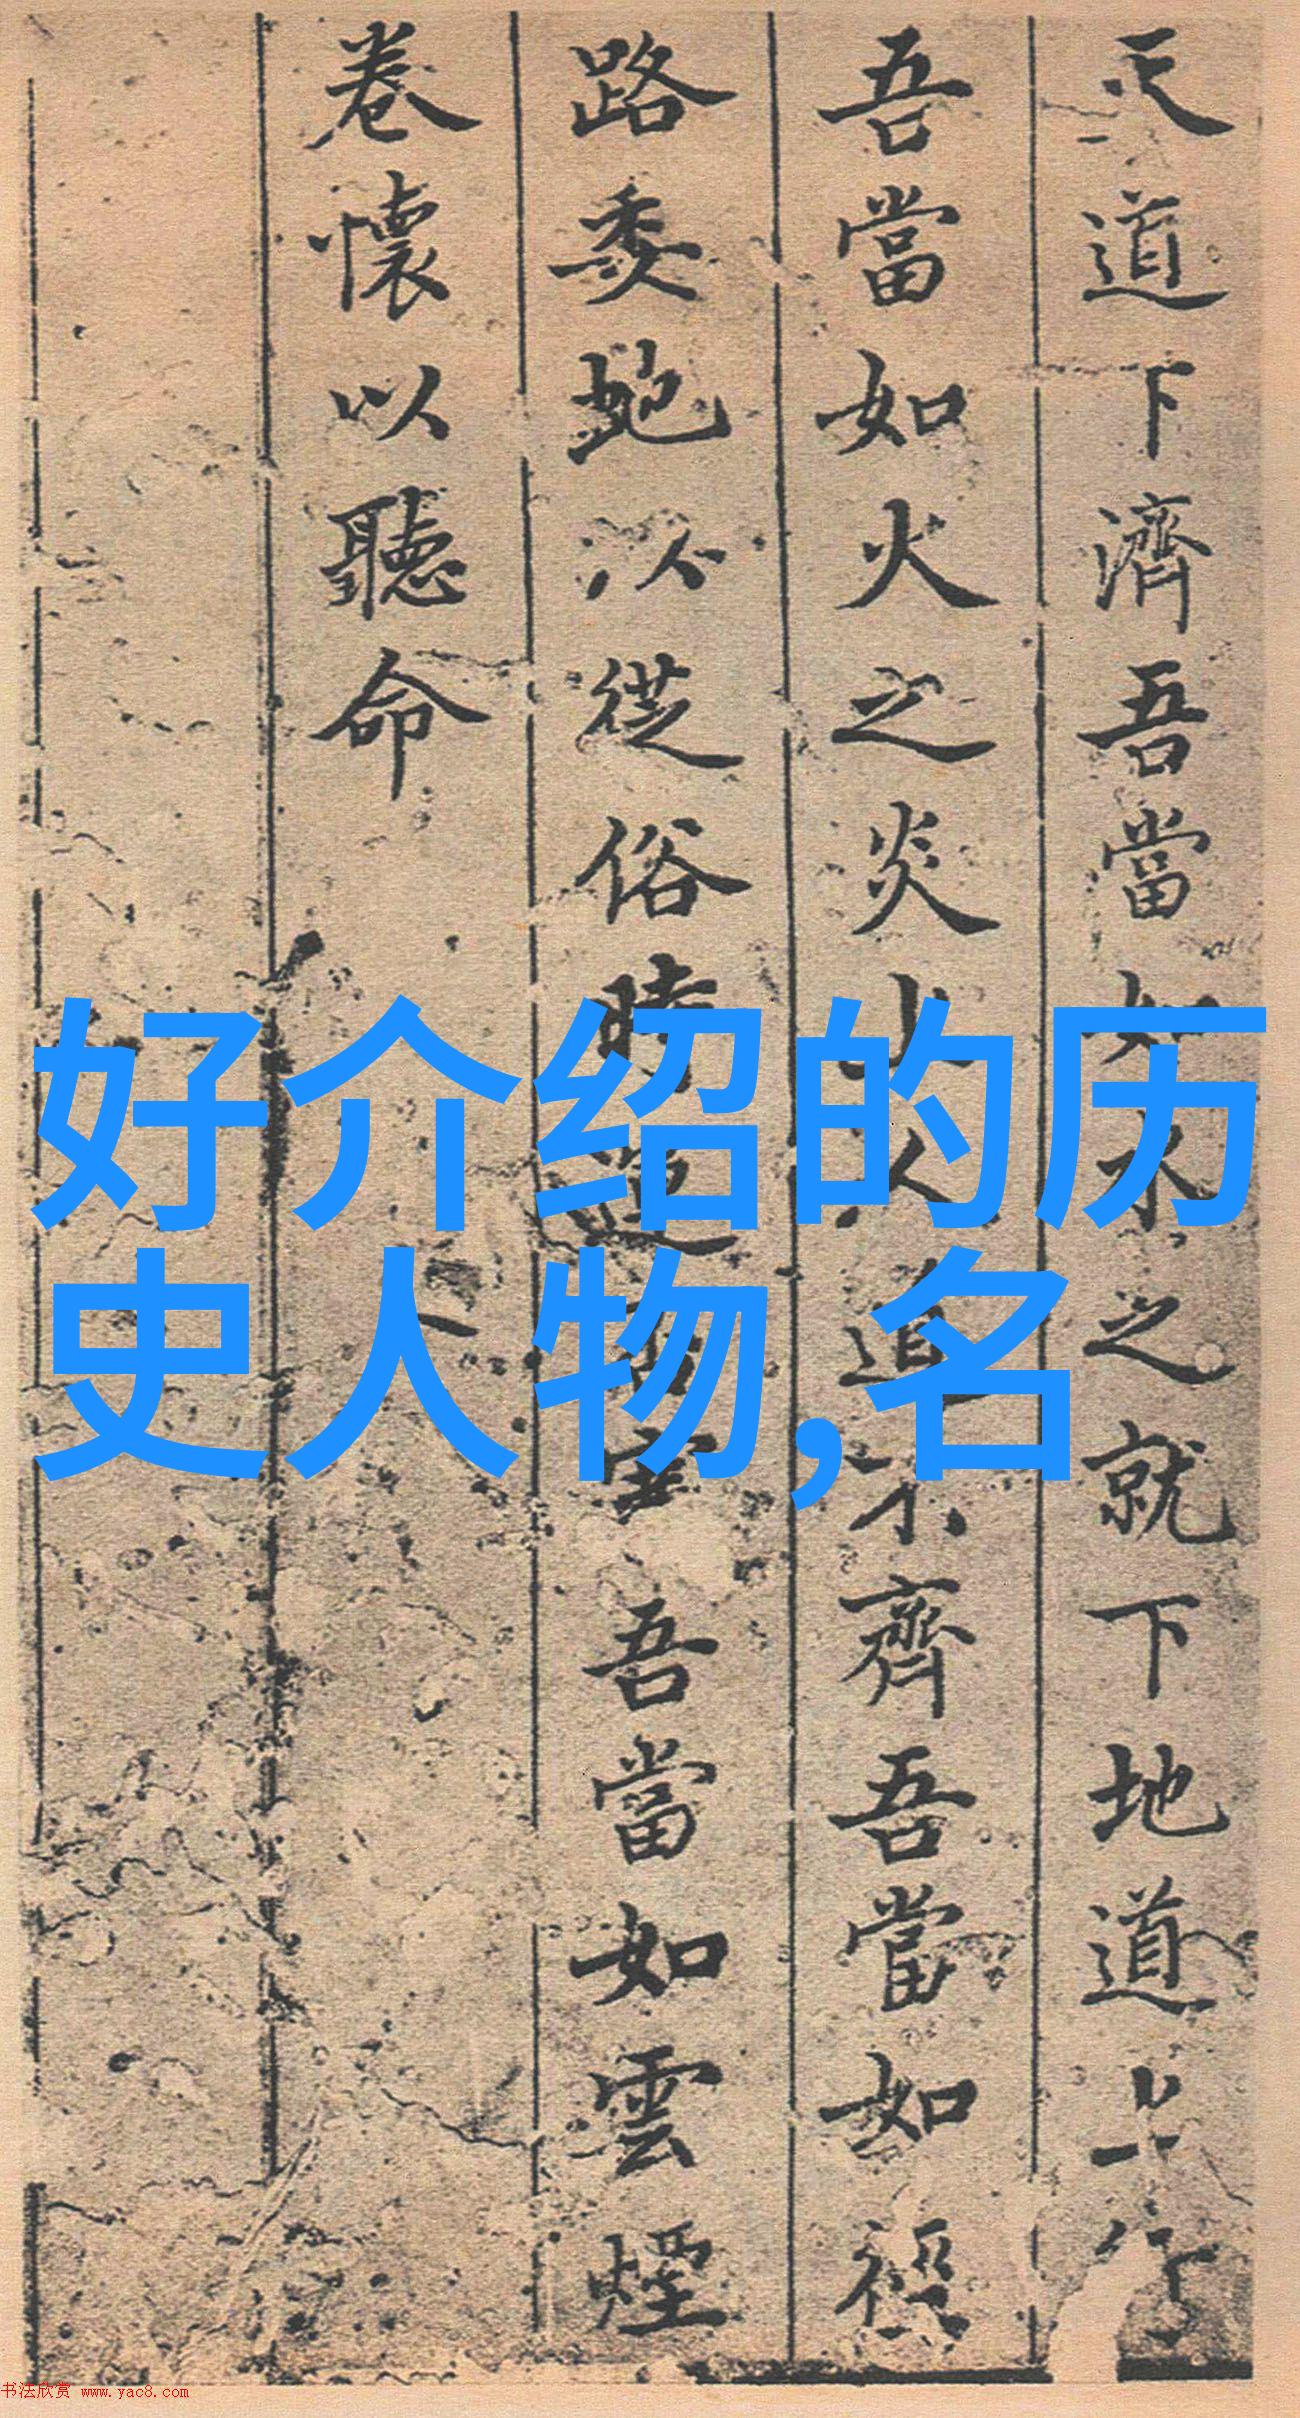 天道下濟吾當如水之就下地道上行
吾當如火之炎上人道不齊吾當如
路委虵以從俗時吾當如雲煙
卷懷以聽命
好介绍的历
史人物,名
书法欣赏 www.yac8.com